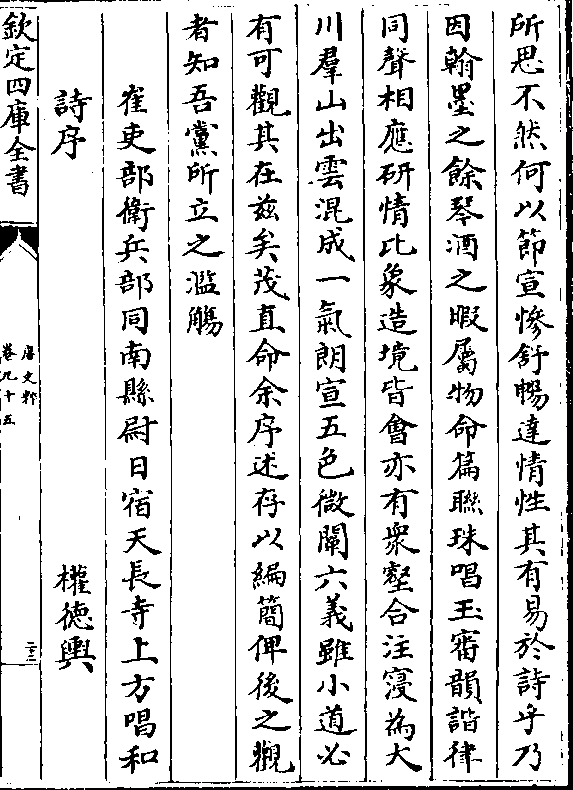 所思不然何以節宣慘舒暢達情性其有易於詩乎乃
因翰墨之餘琴酒之暇屬物命篇聯珠唱玉審韻諧律
同聲相應研情比象造境皆會亦有衆壑合注寖為大
川羣山出雲混成一氣朗宣五色微闡六義雖小道必
有可觀其在兹矣茂直命余序述存以編簡俾後之觀
者知吾黨所立之濫觴
崔吏部衛兵部同南縣尉日宿天長寺上方唱和
詩序
權徳輿
欽定四庫全書
唐文粹
卷九十五
二十二